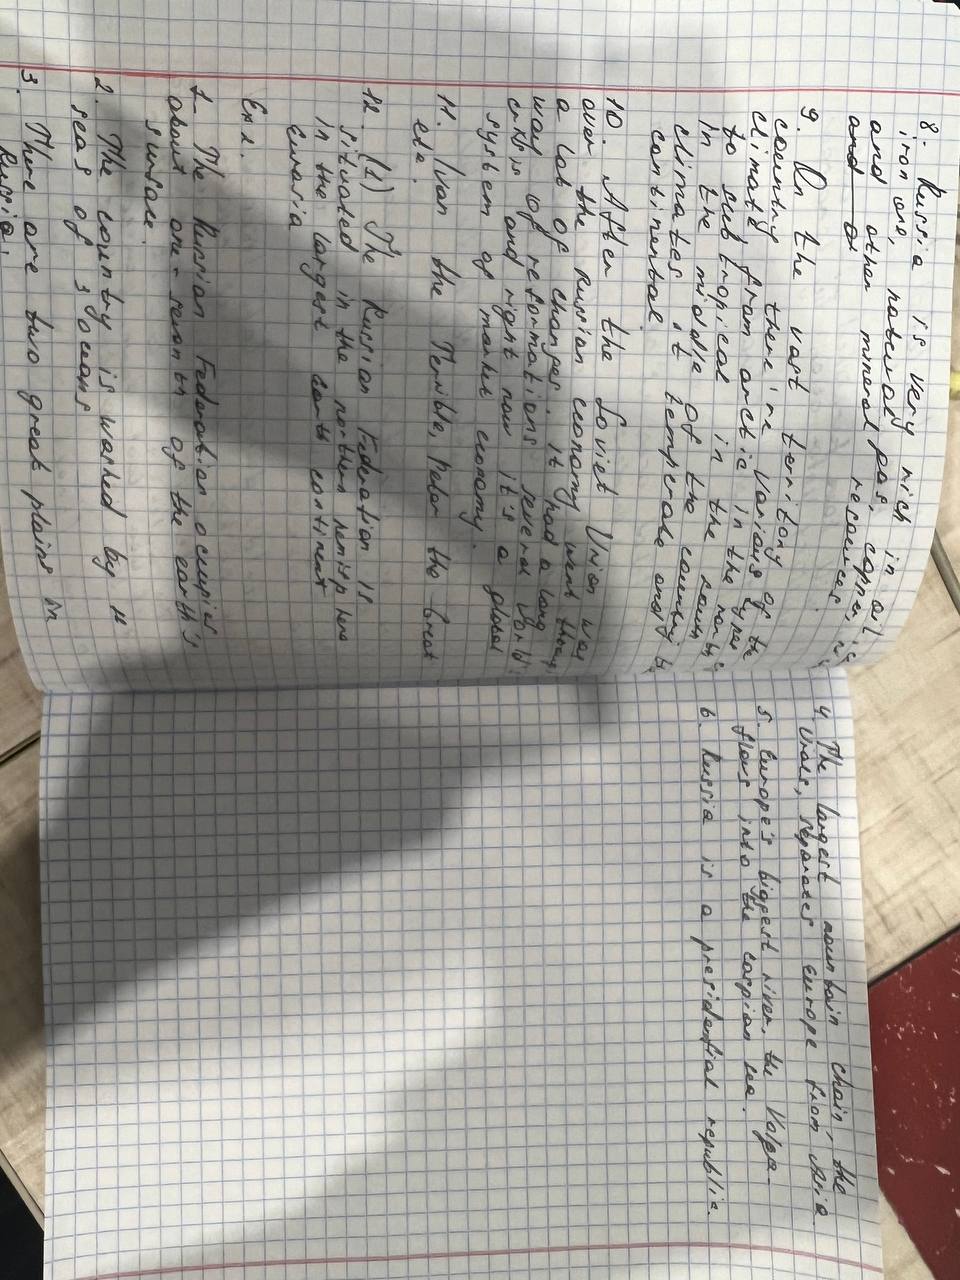 8. Russia is very rich in oil,
iron ore, natural gas, copper,
and other mineral resources.
and o
9. On the vast territory of the
country there're various types
climaty from arctic in the north
to subtropical in the south
In the middle of the country
climates it temperate and
continental.
10. After the Soviet Union was
over the Russian economy went
a lot of changes. it had a long
way of reformations several
crisis and right now it's a global
system of market economy.
11. Ivan the Terrible, Peter the Great
etc.
12. (1) The Russian Federation is
situated in the northen
in the largest continent
Eurasia
Ex 2.
1. The Russian Federation occupies
about one-seventh of the earth's
surface.
2. The country is washed by 12
seas of 3 oceans
3. There are two great plains in
Russia.
4 The largest mountain chain, the
Urals, separates Europe from Asia
5. Europe's biggest river, the Volga.
flows into the Caspian sea.
6. Russia is a presidential republic.